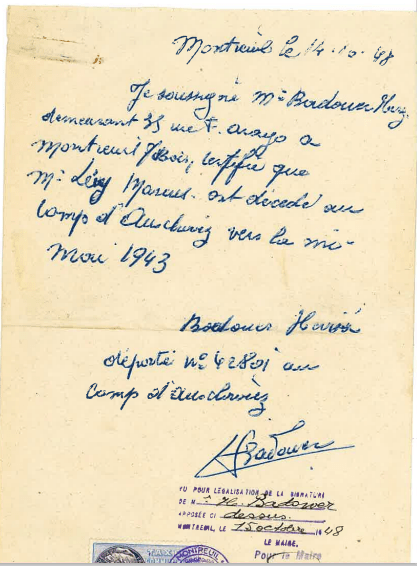 Montreuil le 14-10-48
Je soussigné Mr Badower Herz,
demeurant 33 rue F. arago a
Montreuil s/Bois, certifie que
Mr Lévy Marcus est décédé au
Camp d'Auschwiz vers la mi-
Mai 1943
Badower Hersz
déporté no 42801 au
Camp d'Auschwiz
HBadower
VU POUR LEGALISATION DE LA SIGNATURE
DE M r H. Badower
APPOSÉE CI dessus.
MONTREUIL, LE 15 octobre 1948
LE MAIRE,
Pour le Maire
MONTREUIL